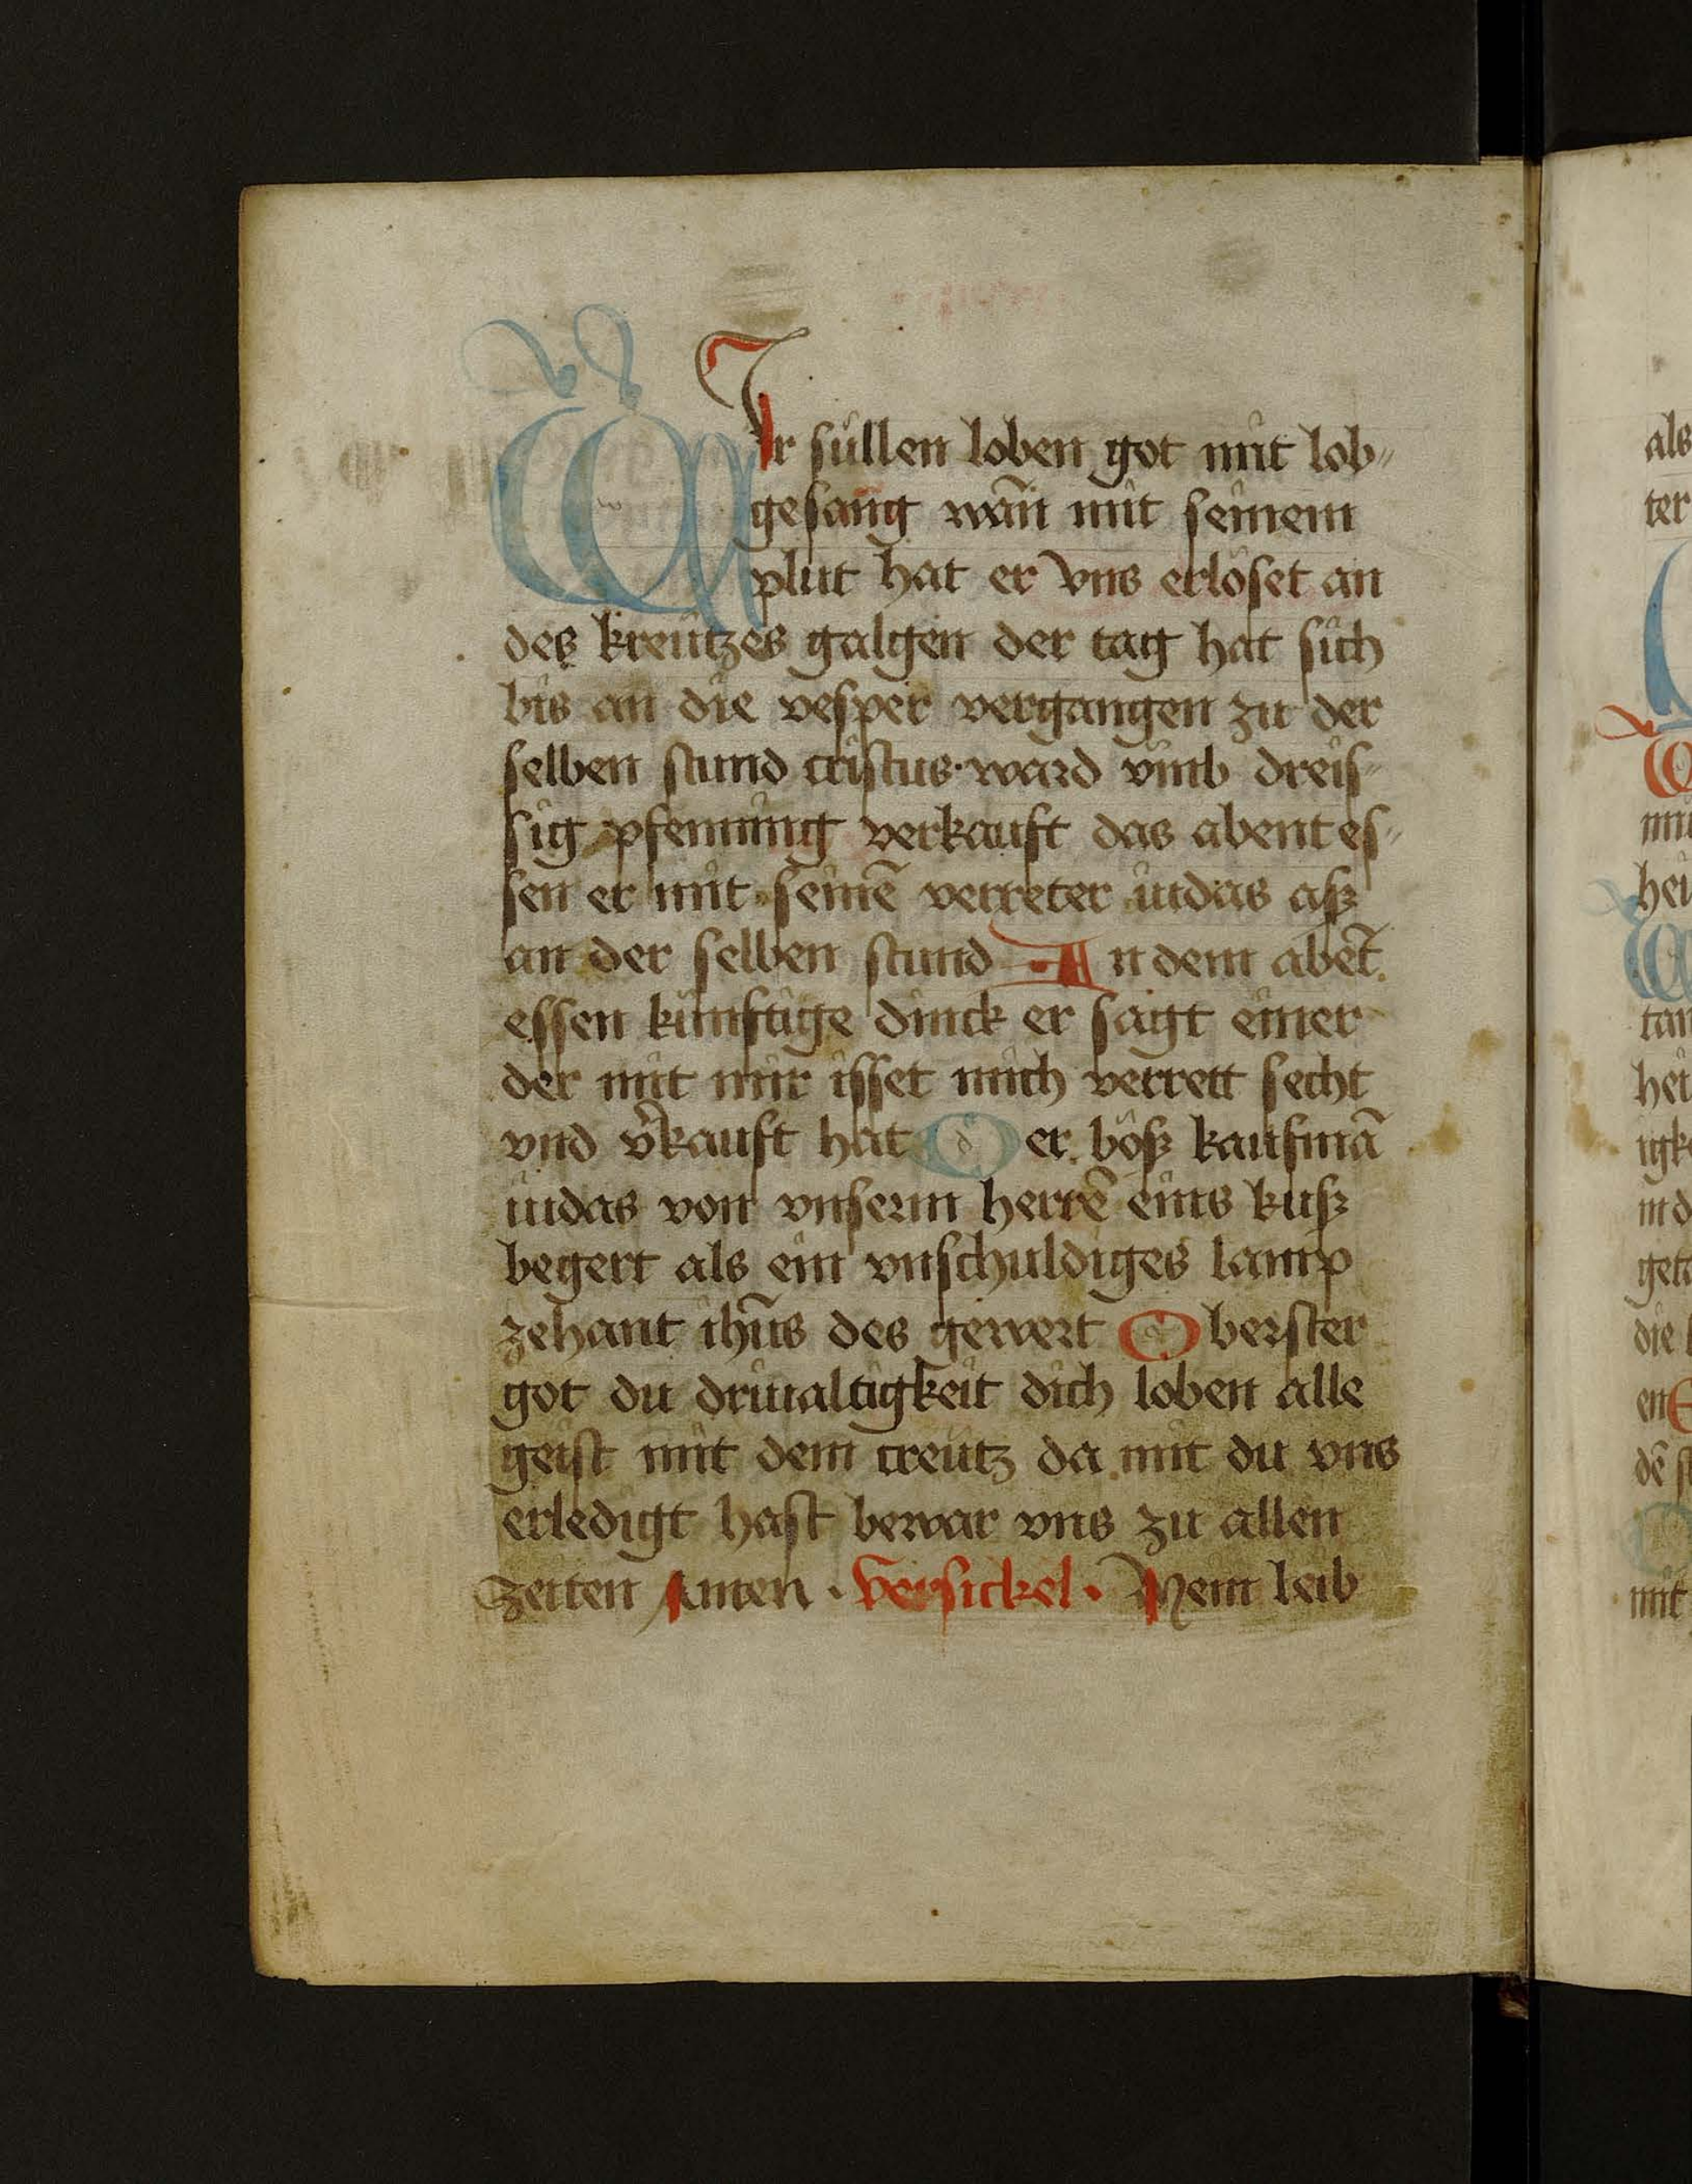 WIr süllen loben got mit lob„
gesang wañ mit seinem
plut hat er vns erlöset an
des kreützes galgen der tag hat sich
bis an die vesper vergangen zu der
selben stund cristus ward vmb dreis„
sig pfenning verkauft das abent es„
sen er mit seinē verreter iudas aß
an der selben stund An dem abēt
essen künftige dinck er sagt einer
der mit mir isset mich verrett secht
vnd v̄kauft hat Der böß kaufmā
iudas von vnserm herrē eins kuß
begert als ein vnschuldiges lamp
zehant ihūs des gewert Oberster
got du driualtigkeit dich loben alle
geist mit dem creütz da mit du vns
erledigt hast bewar vns zu allen
zeiten Amen · Versickel · Mein leib
als
ter
hei
tan
hei
igk
getc
die
en
dē
mit